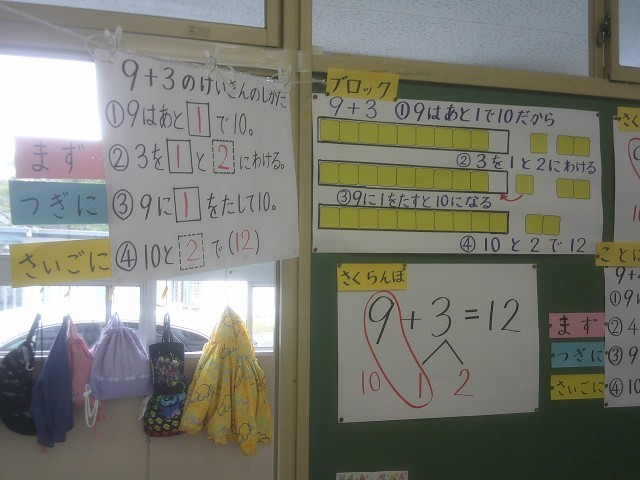 9+3のけいさんのしかた
①9はあと1で10。
まず
②3を1と2にわける。
つぎに
③9に1をたして10。
さいごに
④10と2で(12)
ブロック
9+3 ①9はあと1で10だから
②3を1と2にわける
③9に1をたすと10になる
④10と2で12
さくらんぼ
9+3=12
10 1 2
さく
ことに
9+
①9
まず
②4
つぎに
③9
さいごに
④10